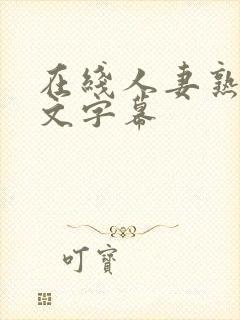 在綫人妻熟
文字幕
叮寶